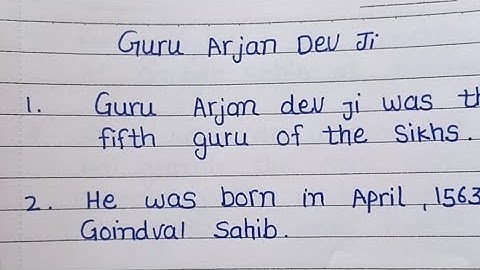 Guru Arjan Dev Ji
1. Guru Arjan dev ji was th
fifth guru of the Sikhs.
2. He was born in April, 1563
Goindval Sahib.